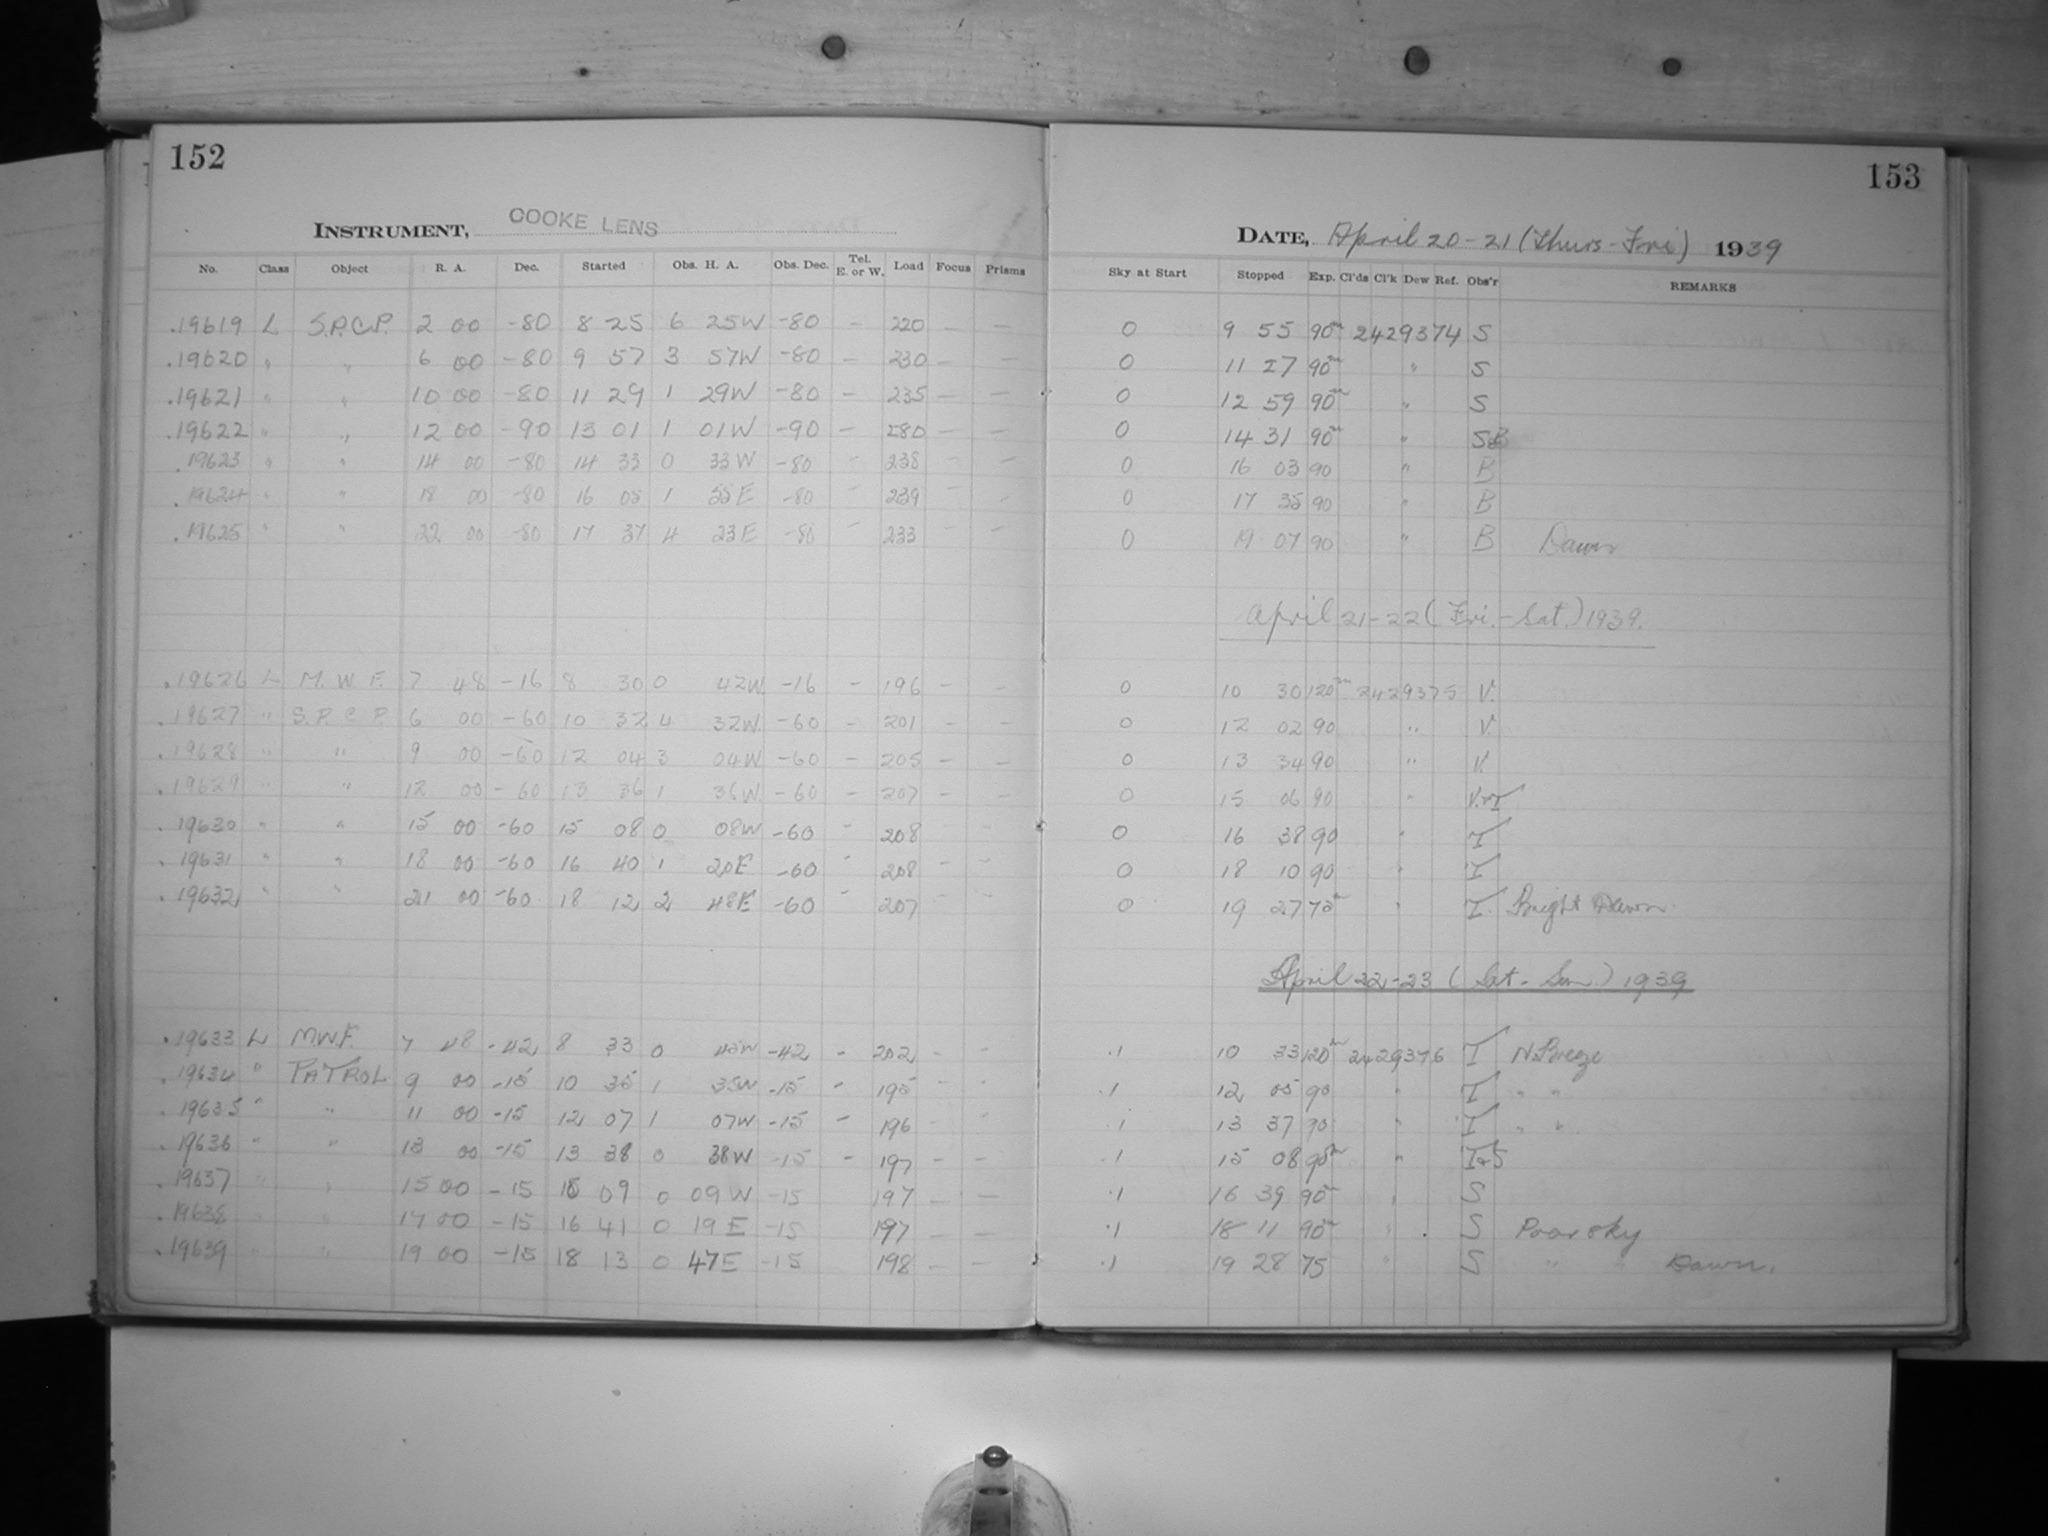 152
INSTRUMENT, COOKE LENS
No. Class Object R. A. Dec. Started Obs. H. A. Obs. Dec. Tel. E. or W. Load Focus Prisms
.19619 L S.P.C.P. 2 00 -80 8 25 6 25W -80 - 220 - -
.19620 " " 6 00 -80 9 57 3 57W -80 - 230 - -
.19621 " " 10 00 -80 11 29 1 29W -80 - 235 - -
.19622 " " 12 00 -90 13 01 1 01W -90 - 280 - -
.19623 " " 14 00 -80 14 33 0 33W -80 - 238 - -
.19624 " " 18 00 -80 16 05 1 55E -80 - 239 - -
.19625 " " 22 00 -80 17 37 4 23E -80 - 233 - -
.19626 L M.W.F. 7 48 -16 8 30 0 42W -16 - 196 - -
.19627 " S.P.C.P. 6 00 -60 10 32 4 32W -60 - 201 - -
.19628 " " 9 00 -60 12 04 3 04W -60 - 205 - -
.19629 " " 12 00 -60 13 36 1 36W -60 - 207 - -
.19630 " " 15 00 -60 15 08 0 08W -60 - 208 - -
.19631 " " 18 00 -60 16 40 1 20E -60 - 208 - -
.19632 " " 21 00 -60 18 12 2 48E -60 - 207 - -
.19633 L M.W.F. 7 48 -42 8 33 0 45W -42 - 202 - -
.19634 " PATROL 9 00 -15 10 35 1 35W -15 - 195 - -
.19635 " " 11 00 -15 12 07 1 07W -15 - 196 - -
.19636 " " 13 00 -15 13 38 0 38W -15 - 197 - -
.19637 " " 15 00 -15 15 09 0 09W -15 197 - -
.19638 " " 17 00 -15 16 41 0 19E -15 197 - -
.19639 " " 19 00 -15 18 13 0 47E -15 198 - -
153
DATE, April 20-21 (Thurs-Fri) 1939
Sky at Start Stopped Exp. Cl'ds Cl'k Dew Ref. Obs'r REMARKS
0 9 55 90m 2429374 S
0 11 27 90m " S
0 12 59 90m " S
0 14 31 90m " SB
0 16 03 90 " B
0 17 35 90 " B
0 19 07 90 " B Dawn
April 21-22 (Fri.-Sat.) 1939.
0 10 30 120m 2429375 V.
0 12 02 90 " V.
0 13 34 90 " V.
0 15 06 90 "
0 16 38 90 " T
0 18 10 90 " T
0 19 27 75m " T. Bright Dawn.
April 22-23 (Sat-Sun.) 1939
.1 10 33 120m 2429376 T N. Breeze
.1 12 05 90 " T " "
.1 13 37 90 " T " "
.1 15 08 90m " T+S
.1 16 39 90m " S
.1 18 11 90m " S Poor sky
.1 19 28 75 " S " " Dawn.